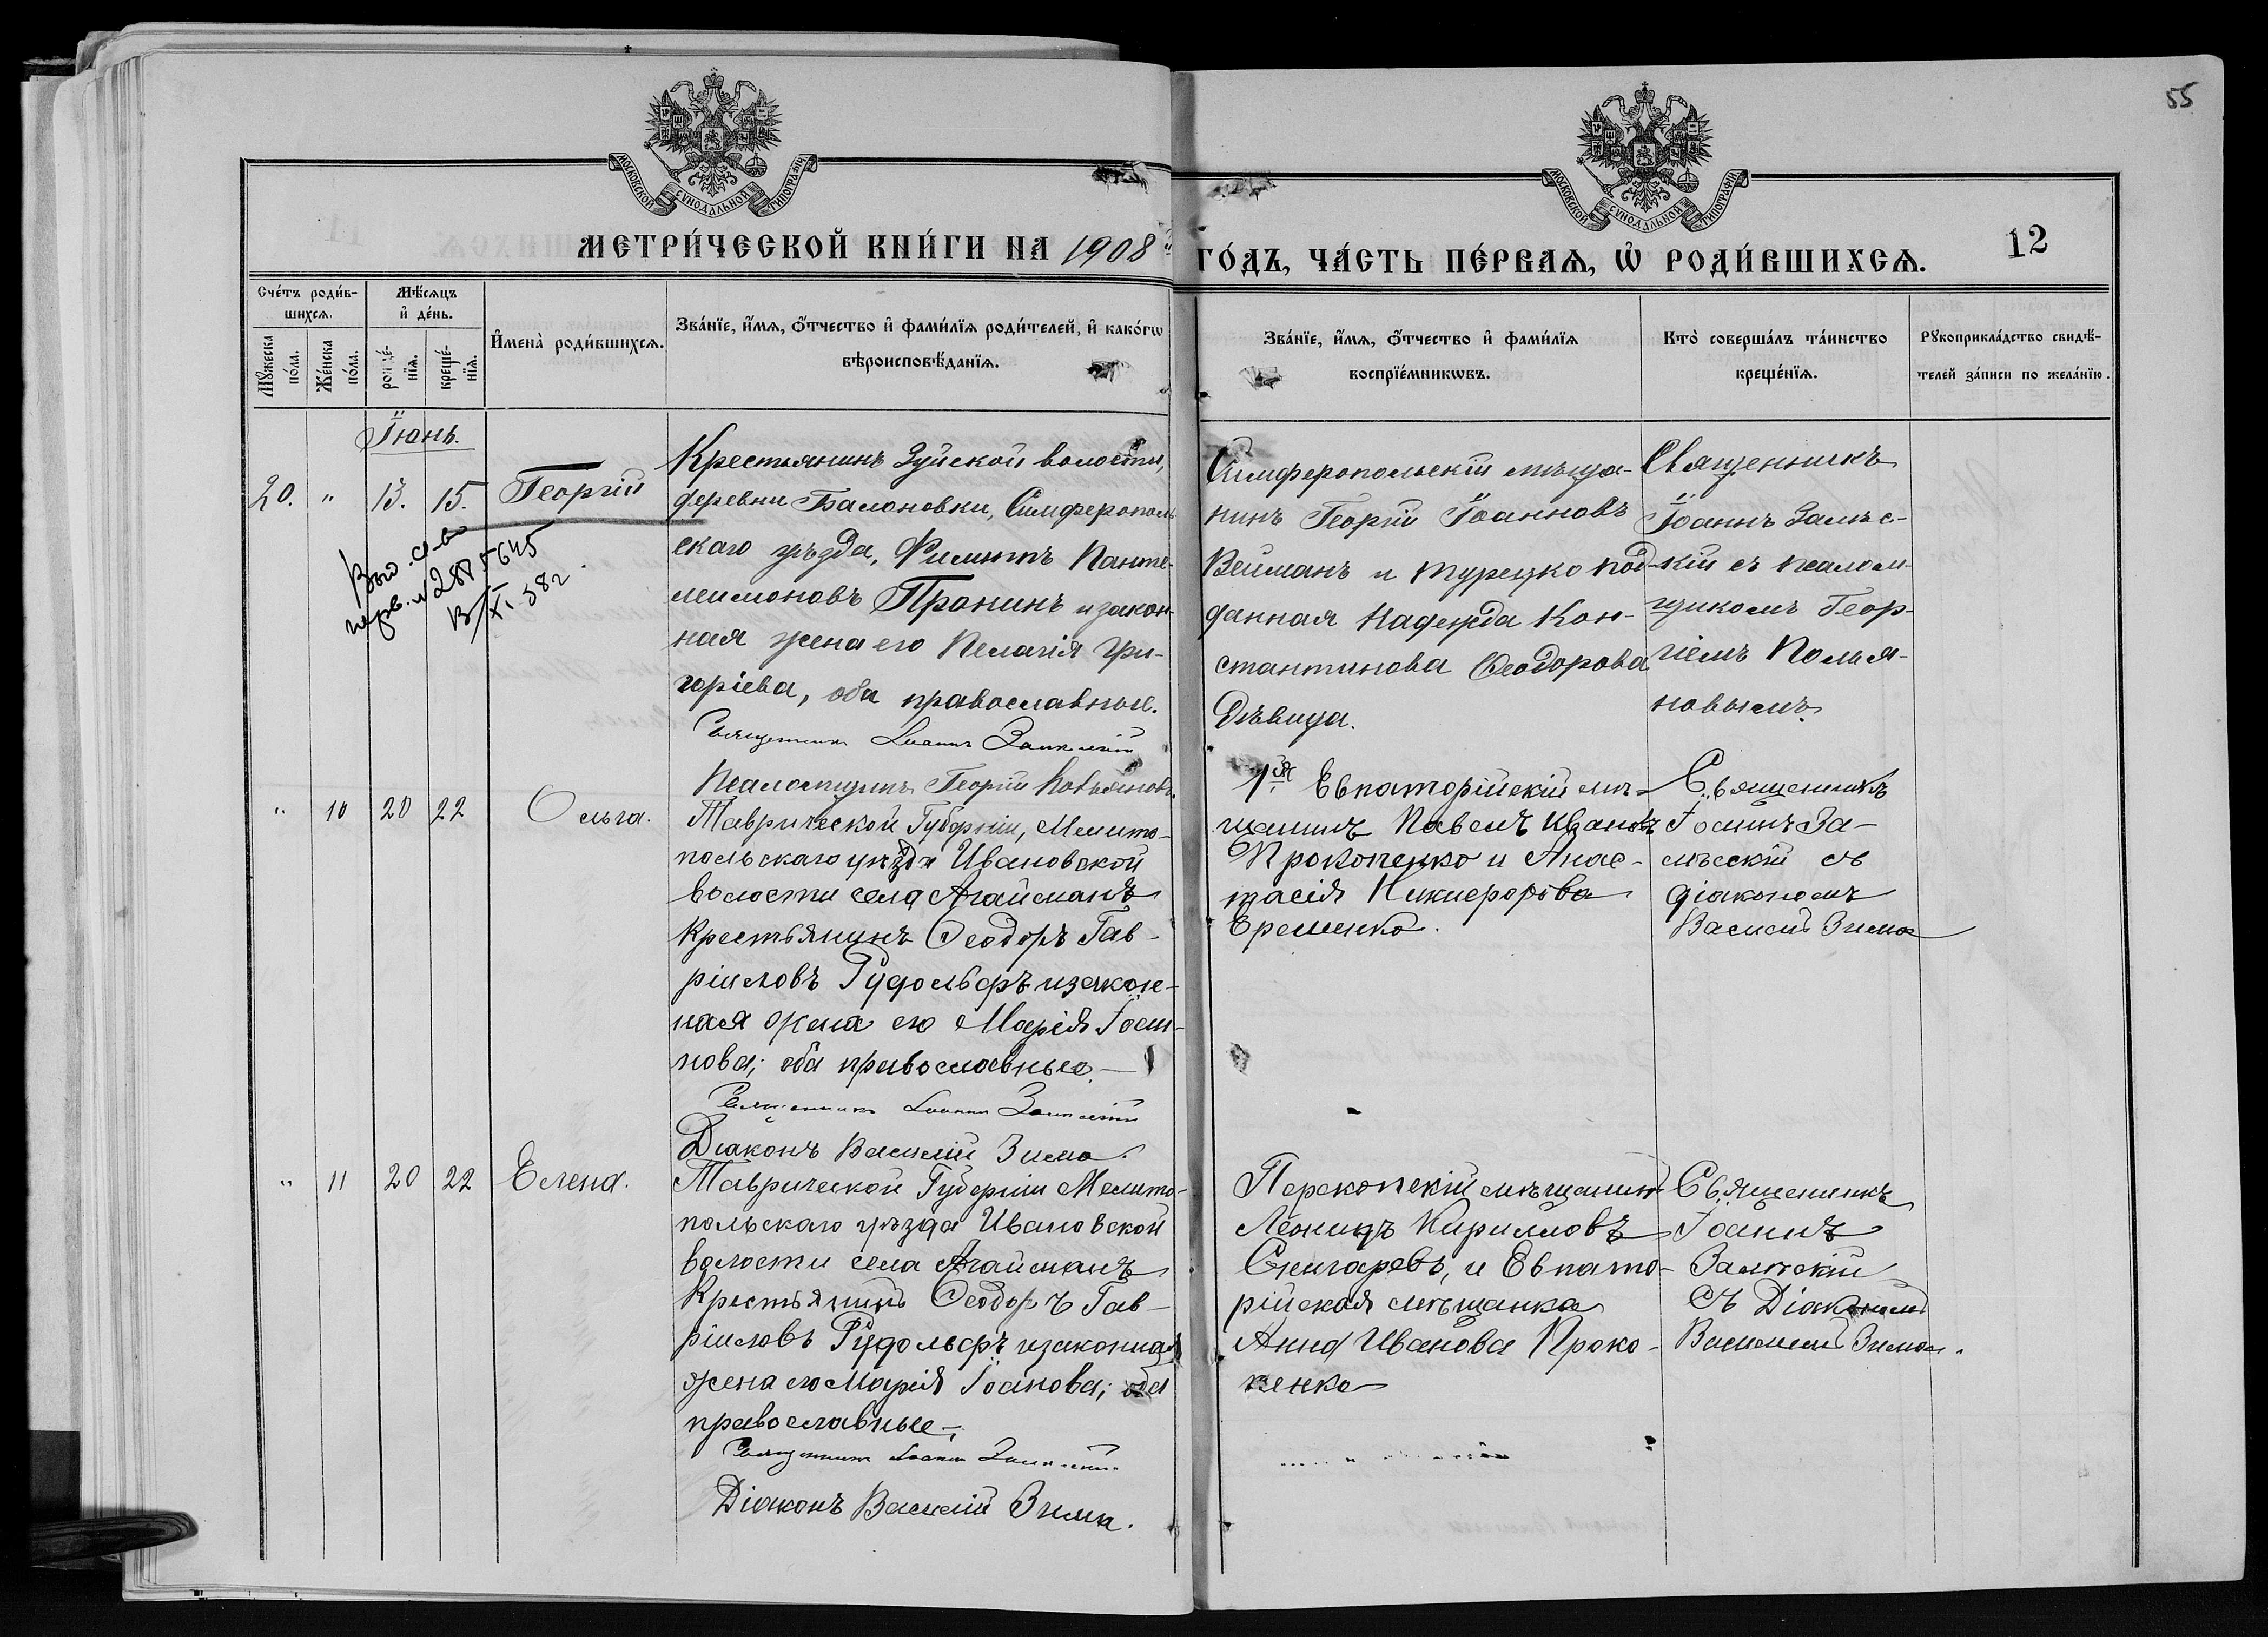 55
МОСКОВСКОЙ СѴНОДАЛЬНОЙ ТИПОГРАФІИ
МОСКОВСКОЙ СѴНОДАЛЬНОЙ ТИПОГРАФІИ
МЕТРИ́ЧЕСКОЙ КНИ́ГИ НА 1908й
ГО́ДЪ, ЧА́СТЬ ПЕ́РВАѦ, Ѡ҆ РОДИ́ВШИХСѦ.
12
Сче́тъ роди́в-
шихсѧ.
Мѣ́сѧцъ
и҆ де́нь.
Мꙋ́жеска
по́ла.
Же́нска
по́ла.
рожде́-
нїѧ.
креще́-
нїѧ.
И҆мена̀ роди́вшихсѧ.
Зва́нїе, и҆́мѧ, ѻ҆́тчество и҆ фами́лїѧ роди́телей, и҆ како́гѡ
вѣроисповѣ́данїѧ.
Зва́нїе, и҆́мѧ, ѻ҆́тчество и҆ фами́лїѧ
воспрїе́мникѡвъ.
Кто̀ соверша́лъ та́инство
креще́нїѧ.
Рꙋкоприкла́дство свидѣ́-
телей за́писи по жела́нїю.
Іюнь.
20. " 13. 15. Георгій
Выд. св-во
перв. № 2875645
В/XI.58г.
Крестьянинъ Зуйской волости,
деревни Баланов­ки, Симферополь
скаго уѣзда, Филиппъ Панте-
леимоновъ Пронинъ и закон-
ная жена его Пелагія Гри-
горіева, оба православные.
Священникъ Іоаннъ Замѣскій
Псаломщикъ Георгій Польяновъ.
Симферопольскій мѣща-
нинъ Георгій Іоанновъ
Вейманъ и турецко под-
данная Надежда Кон-
стантинова Ѳеодорова
дѣвица.
Священникъ
Іоаннъ Замѣс-
кій съ псалом-
щикомъ Геор-
гіемъ Полья-
новымъ.
" 10 20 22 Ольга.
Таврической Губерніи, Мелито-
польскаго уѣзда Ивановской
волости села Агайманъ
Крестьянинъ Ѳеодоръ Гав-
ріиловъ Рудольфъ и закон-
ная жена его Марія Іоан-
нова; оба православные.
Священникъ Іоаннъ Замѣскій
Діаконъ Василій Зима.
1я Евпаторійскій мѣ-
щанинъ Павелъ Ивановъ
Прокопенко и Анас-
тасія Никифорова
Еременко.
Священникъ
Іоаннъ За-
мѣскій съ
діакономъ
Василій Зима
" 11 20 22 Елена.
Таврической Губерніи Мелито-
польскаго уѣзда Ивановской
волости села Агайманъ
Крестьянинъ Ѳеодоръ Гав-
ріиловъ Рудольфъ и законная
жена его Марія Іоанова; оба
православные.
Священникъ Іоаннъ Замѣскій
Діаконъ Василій Зима.
Перекопскій мѣщанинъ
Леонидъ Кирилловъ
Снигаревъ, и Евпато-
рійская мѣщанка
Анна Иванова Проко-
пенко
Священникъ
Іоаннъ
Замѣскій
съ Діакономъ
Василіемъ Зимою.